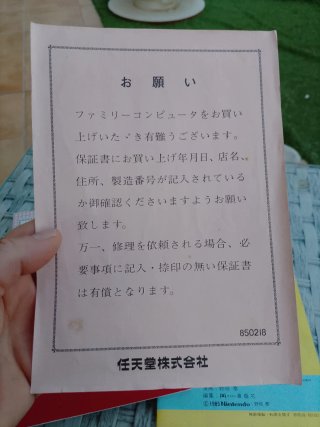 お願い
ファミリーコンピュータをお買い
上げいたゞき有難うございます。
保証書にお買い上げ年月日、店名、
住所、製造番号が記入されている
か御確認くださいますようお願い
致します。
万一、修理を依頼される場合、必
要事項に記入・捺印の無い保証書
は有償となります。
850218
任天堂株式会社
©1985 Nintendo